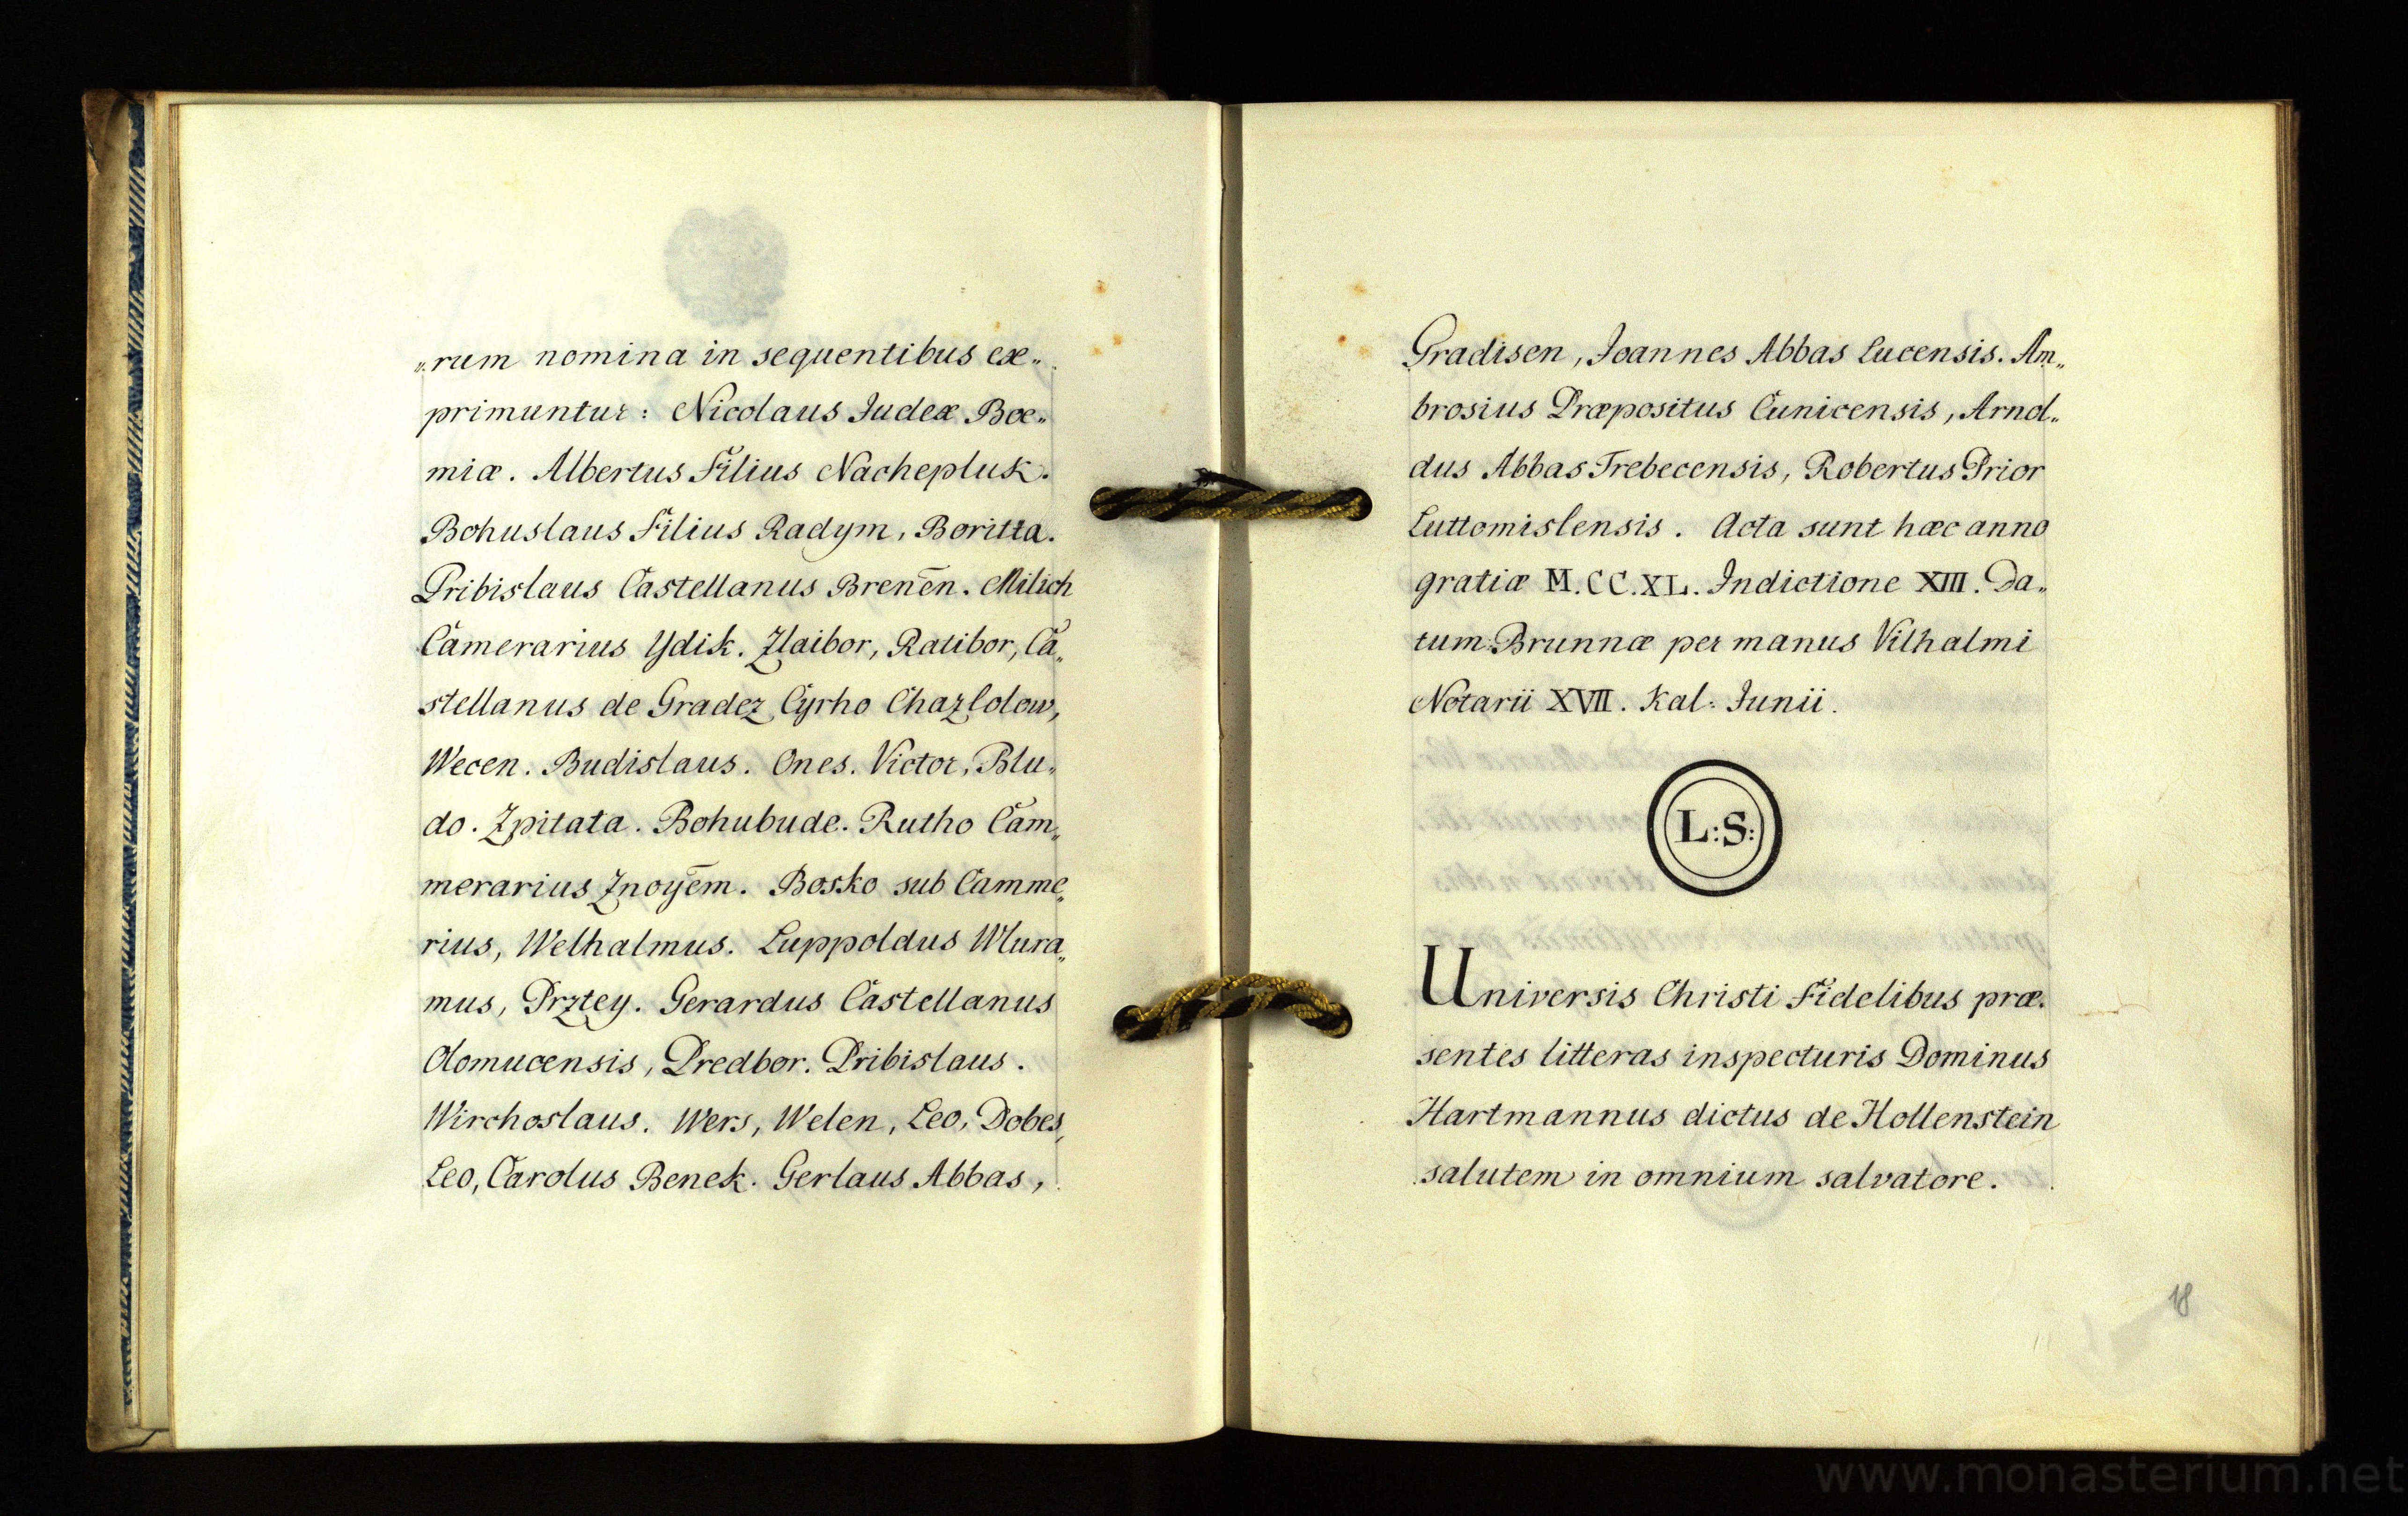 „rum nomina in sequentibus ex„
primuntur: Nicolaus Judex Boe„
miæ. Albertus Filius Nachepluk.
Bohuslaus Filius Radym, Boritta.
Pribislaus Castellanus Brenēn. Milich
Camerarius Ydik. Zlaibor, Ratibor, Ca„
stellanus de Gradez Cyrho Chazlolow,
Wecen. Budislaus. Ones. Victor, Blu„
do. Zpitata. Bohubude. Rutho Cam„
merarius Znoyēm. Bosko sub Camme„
rius, Welhalmus. Luppoldus Wlura„
mus, Prztey. Gerardus Castellanus
Olomucensis, Predbor. Pribislaus.
Wirchoslaus. Wers, Welen, Leo, Dobes,
Leo, Carolus Benek. Gerlaus Abbas,
Gradisen, Joannes Abbas Lucensis. Am„
brosius Præpositus Cunicensis, Arnol„
dus Abbas Trebecensis, Robertus Prior
Luttomislensis. Acta sunt hæc anno
gratiæ M.CC.XL. Indictione XIII. Da„
tum Brunnæ per manus Vilhalmi
Notarii XVII. Kal: Junii.
L:S:
Universis Christi Fidelibus præ„
sentes litteras inspecturis Dominus
Hartmannus dictus de Hollenstein
salutem in omnium salvatore.
18
www.monasterium.net